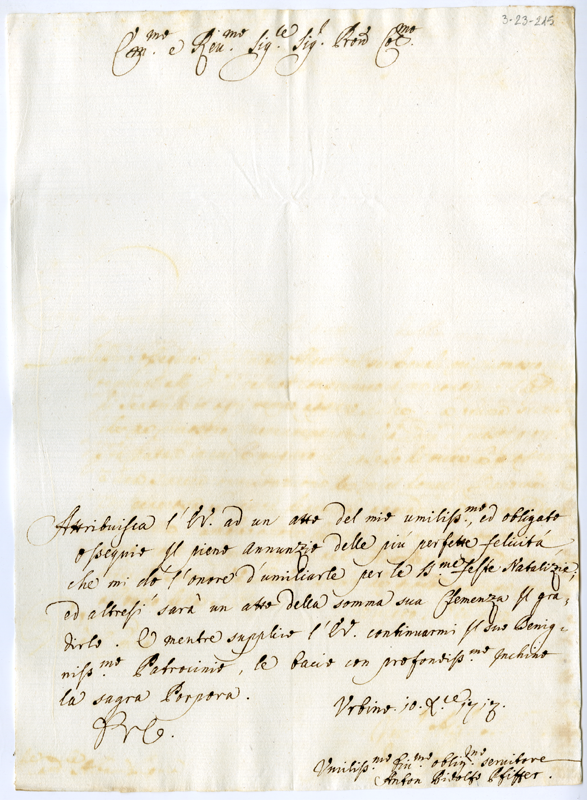 3-23-245
Em.mo e Reu.mo Sig.re Sig.r Pron Col.mo
Attribuisca l'EV. ad un atto del mio umiliss.mo, ed obligato
ossequio il pieno annunzio delle più perfette felicità
che mi dò l'onore d'umiliarle per le S.me feste Natalizie,
ed altresì sarà un atto della somma sua Clemenza il gra-
dirlo. E mentre supplico l'EV. continuarmi il suo Benig-
niss.mo Patrocinio, le bacio con profondiss.mo Inchino
la sagra Porpora.
Urbino. 10. X.ce
Umiliss.mo obblig.mo servitore
Anton Ridolfo Pfiffer.